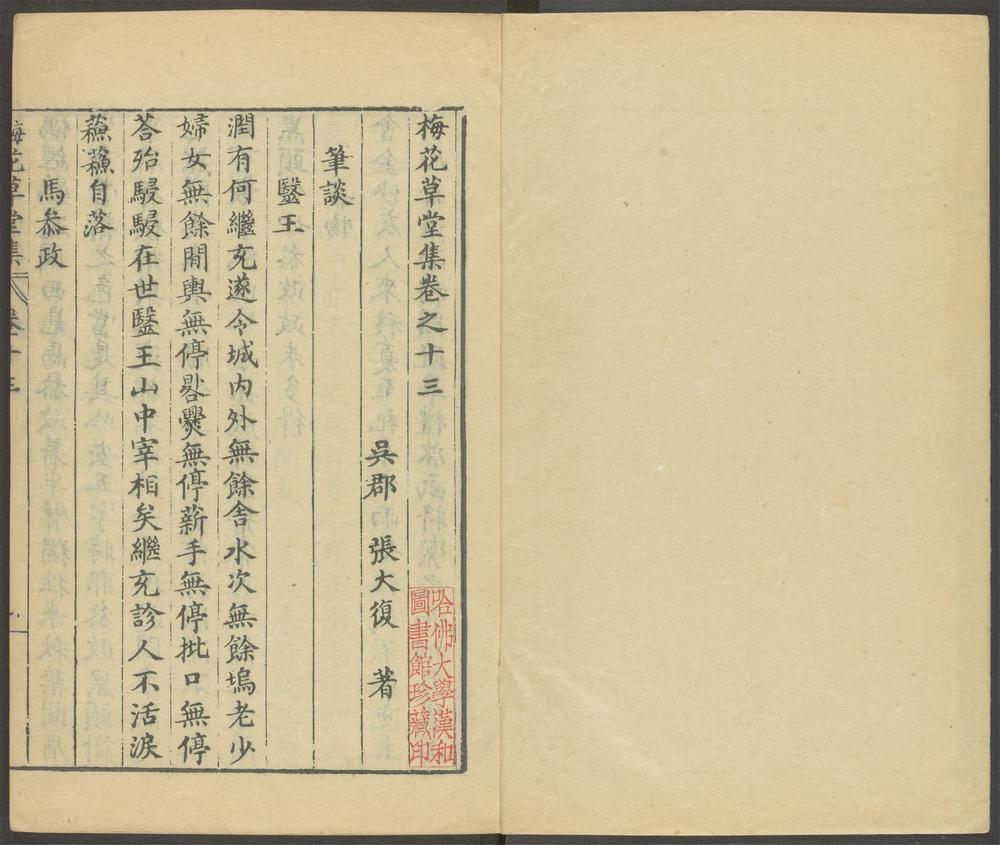 梅花草堂集卷之十三
吳郡 張大復 著
筆談
毉王
潤有何繼充遂令城内外無餘舎水次無餘塢老少
婦女無餘間輿無停晷爨無停薪手無停批口無停
荅殆駸駸在世毉王山中宰相矣繼充診人不活淚
蘓蘓自落
馬叅政
梅花草堂集 卷十三 一
哈佛大學漢和
圖書館珍藏印